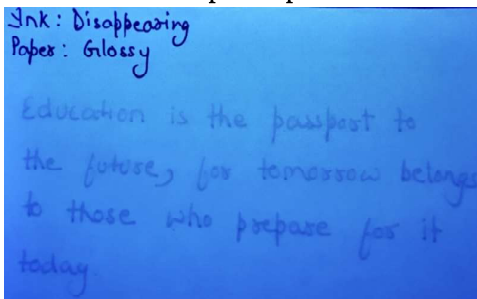 Ink: Disappearing
Paper: Glossy
Education is the passport to
the future, for tomorrow belongs
to those who prepare for it
today.